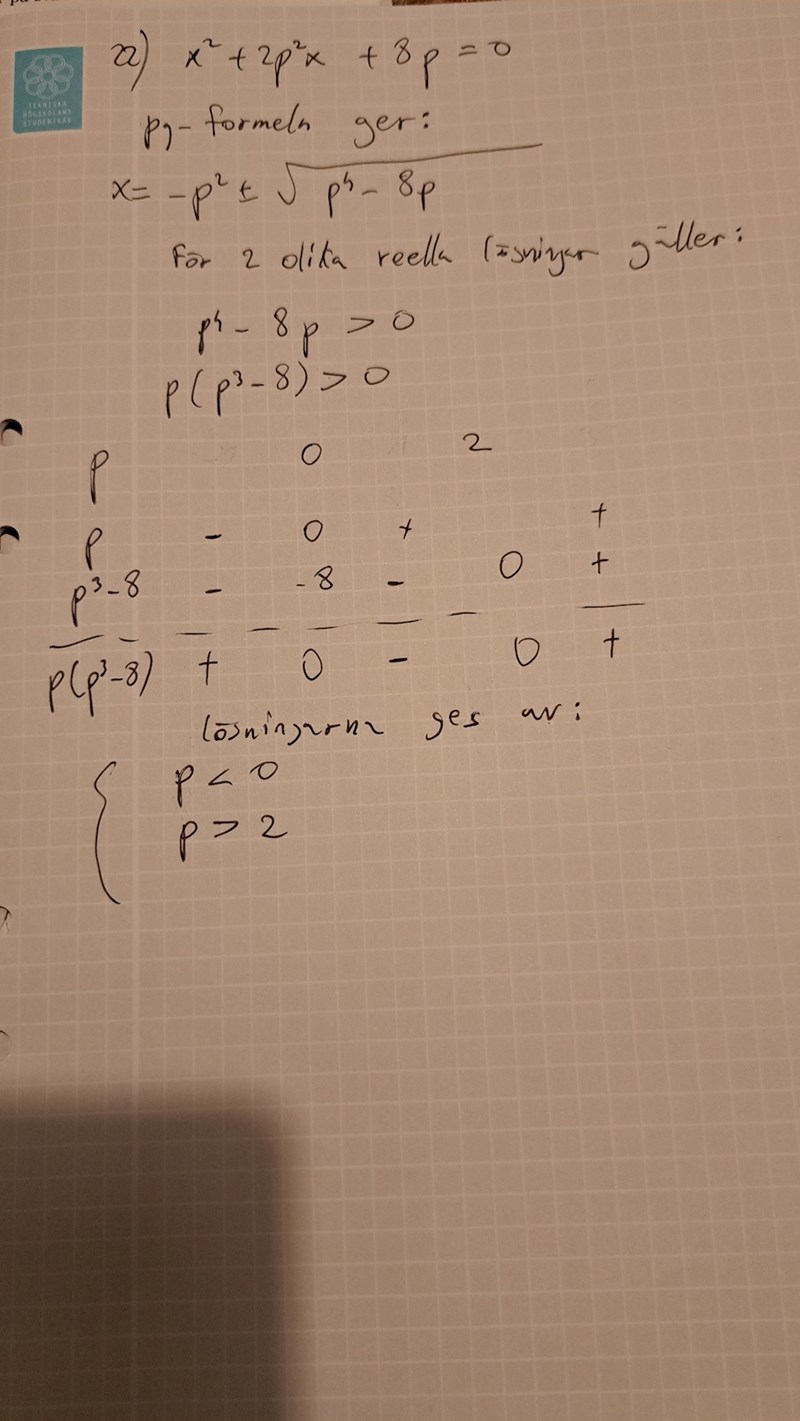 TEKNISKA
HÖGSKOLANS
STUDENTKÅR
22) x² + 2p²x + 8p = 0
pq-formeln ger:
x = -p² ± √(p⁴ - 8p)
För 2 olika reella lösningar gäller:
p⁴ - 8p > 0
p(p³-8) > 0
p 0 2
p - 0 + +
p³-8 - -8 - 0 +
p(p³-8) + 0 - 0 +
lösningarna ges av:
{ p < 0
p > 2